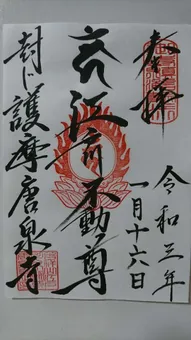 奉拝
令和三年
一月十六日
不動尊
封じ護摩唐泉寺